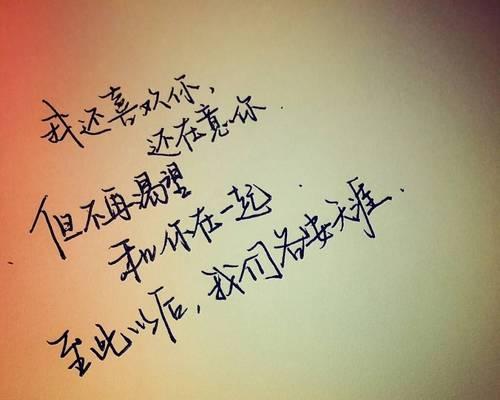 我还喜欢你,
还在意你.
但不再渴望
和你在一起.
至此以后,我们各安天涯.